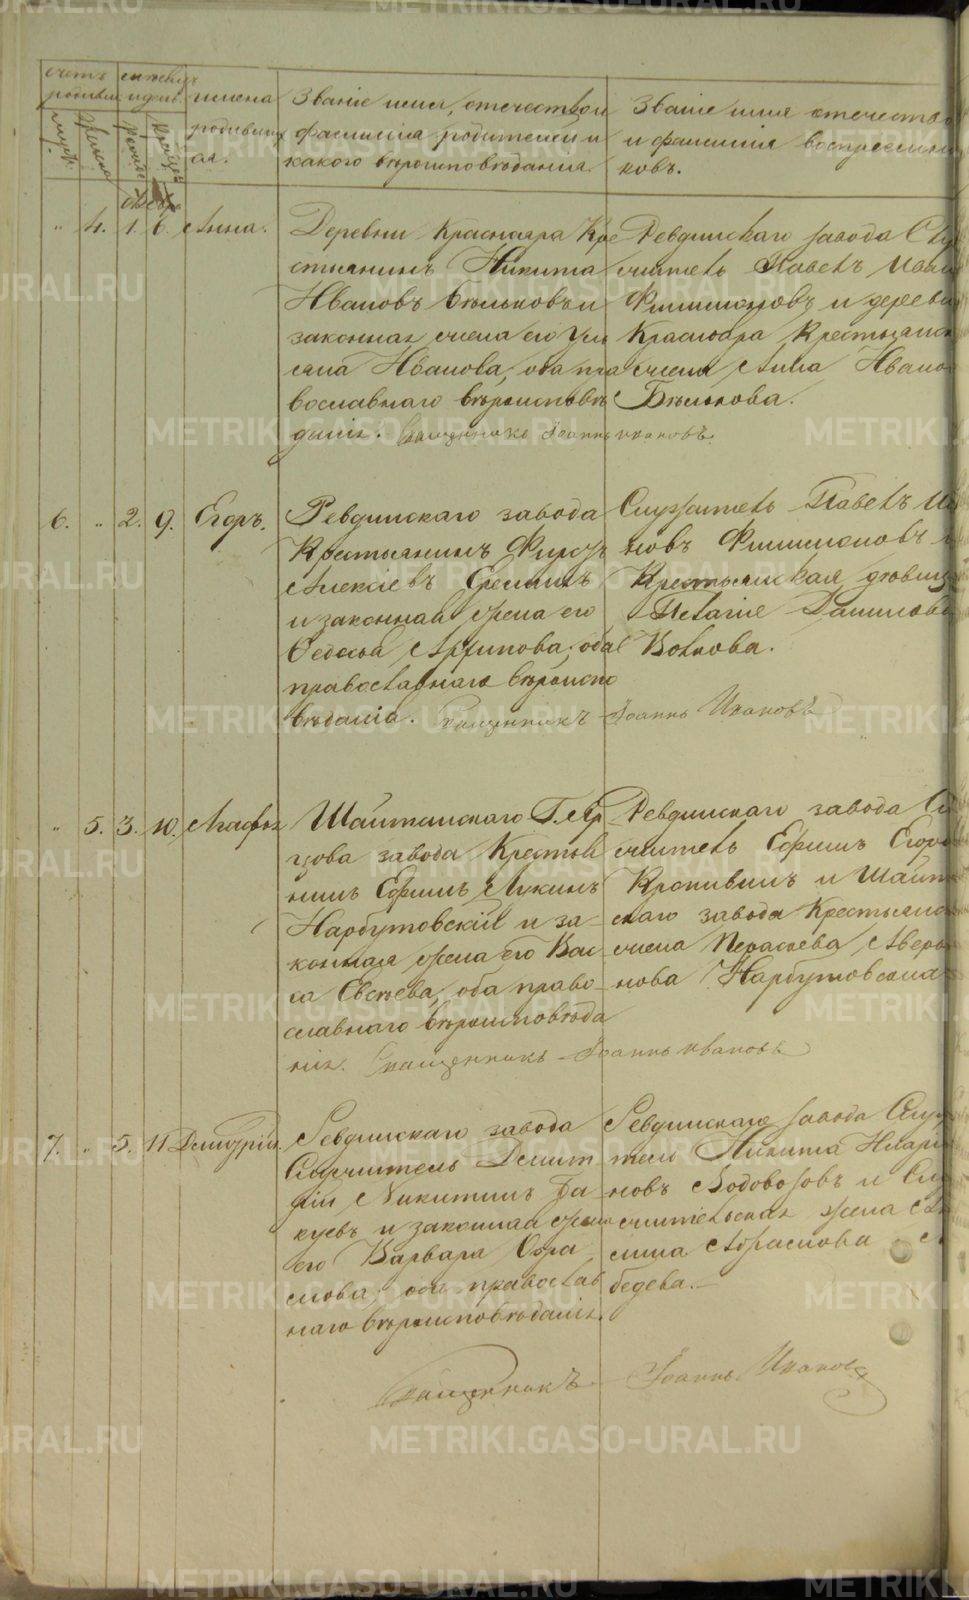 счетъ
родивш
муж.
женск
Званіе имя, отечество и
фамилія родителей и
какого вѣроисповѣданія.
имена
родивших
ся.
Званіе имя отечество
и фамилія воспреемни
ковъ.
" 4. 1. 6. Анна.
Деревни Краснаяра Кре
стьянинъ Никита
Ивановъ Бѣльковъ и
законная жена его Уль
яна Иванова, оба пра
вославнаго вѣроисповѣ
данія. Священникъ Іоаннъ Ивановъ.
Ревдинскаго завода Слу
житель Павелъ Ивано
Филимоновъ и деревни
Краснояра Крестьянск
жена Анна Ивано
Бѣлькова.
6. " 2. 9. Егоръ.
Ревдинскаго завода
Крестьянинъ Фирсъ
Алексіевъ Ереминъ
и законная жена его
Ѳедосья Архипова, оба
православнаго вѣроиспо
вѣданія. Священникъ Іоаннъ Ивановъ
Служитель Павелъ Ива
новъ Филимоновъ и
Крестьянская вдовица
Пелагія Данилова
Волкова.
" 5. 3. 10. Агафья
Шайтанскаго Г. Яр
цова завода Крестья
нинъ Ефимъ Лукинъ
Нарбутовскій и за-
конная жена его Вас
са Евсѣева, оба право-
славнаго вѣроисповѣда
нія. Священникъ Іоаннъ Ивановъ
Ревдинскаго завода Слу
житель Ефимъ Егоро
Кропивинъ и Шайтан
скаго завода Крестьянск
жена Параскева Аверья
нова Нарбутовская
7. " 5. 11 Димитрій.
Ревдинскаго завода
Служитель Димит
рій Никитинъ
и законная жена
его Варвара
оба православ
наго вѣроисповѣданія.
Ревдинскаго завода Служи
тель Никита Иларіо
новъ Водовозовъ и Слу
жительская жена
Абрамова
бедева.
Священникъ Іоаннъ Ивановъ
METRIKI.GASO-URAL.RU